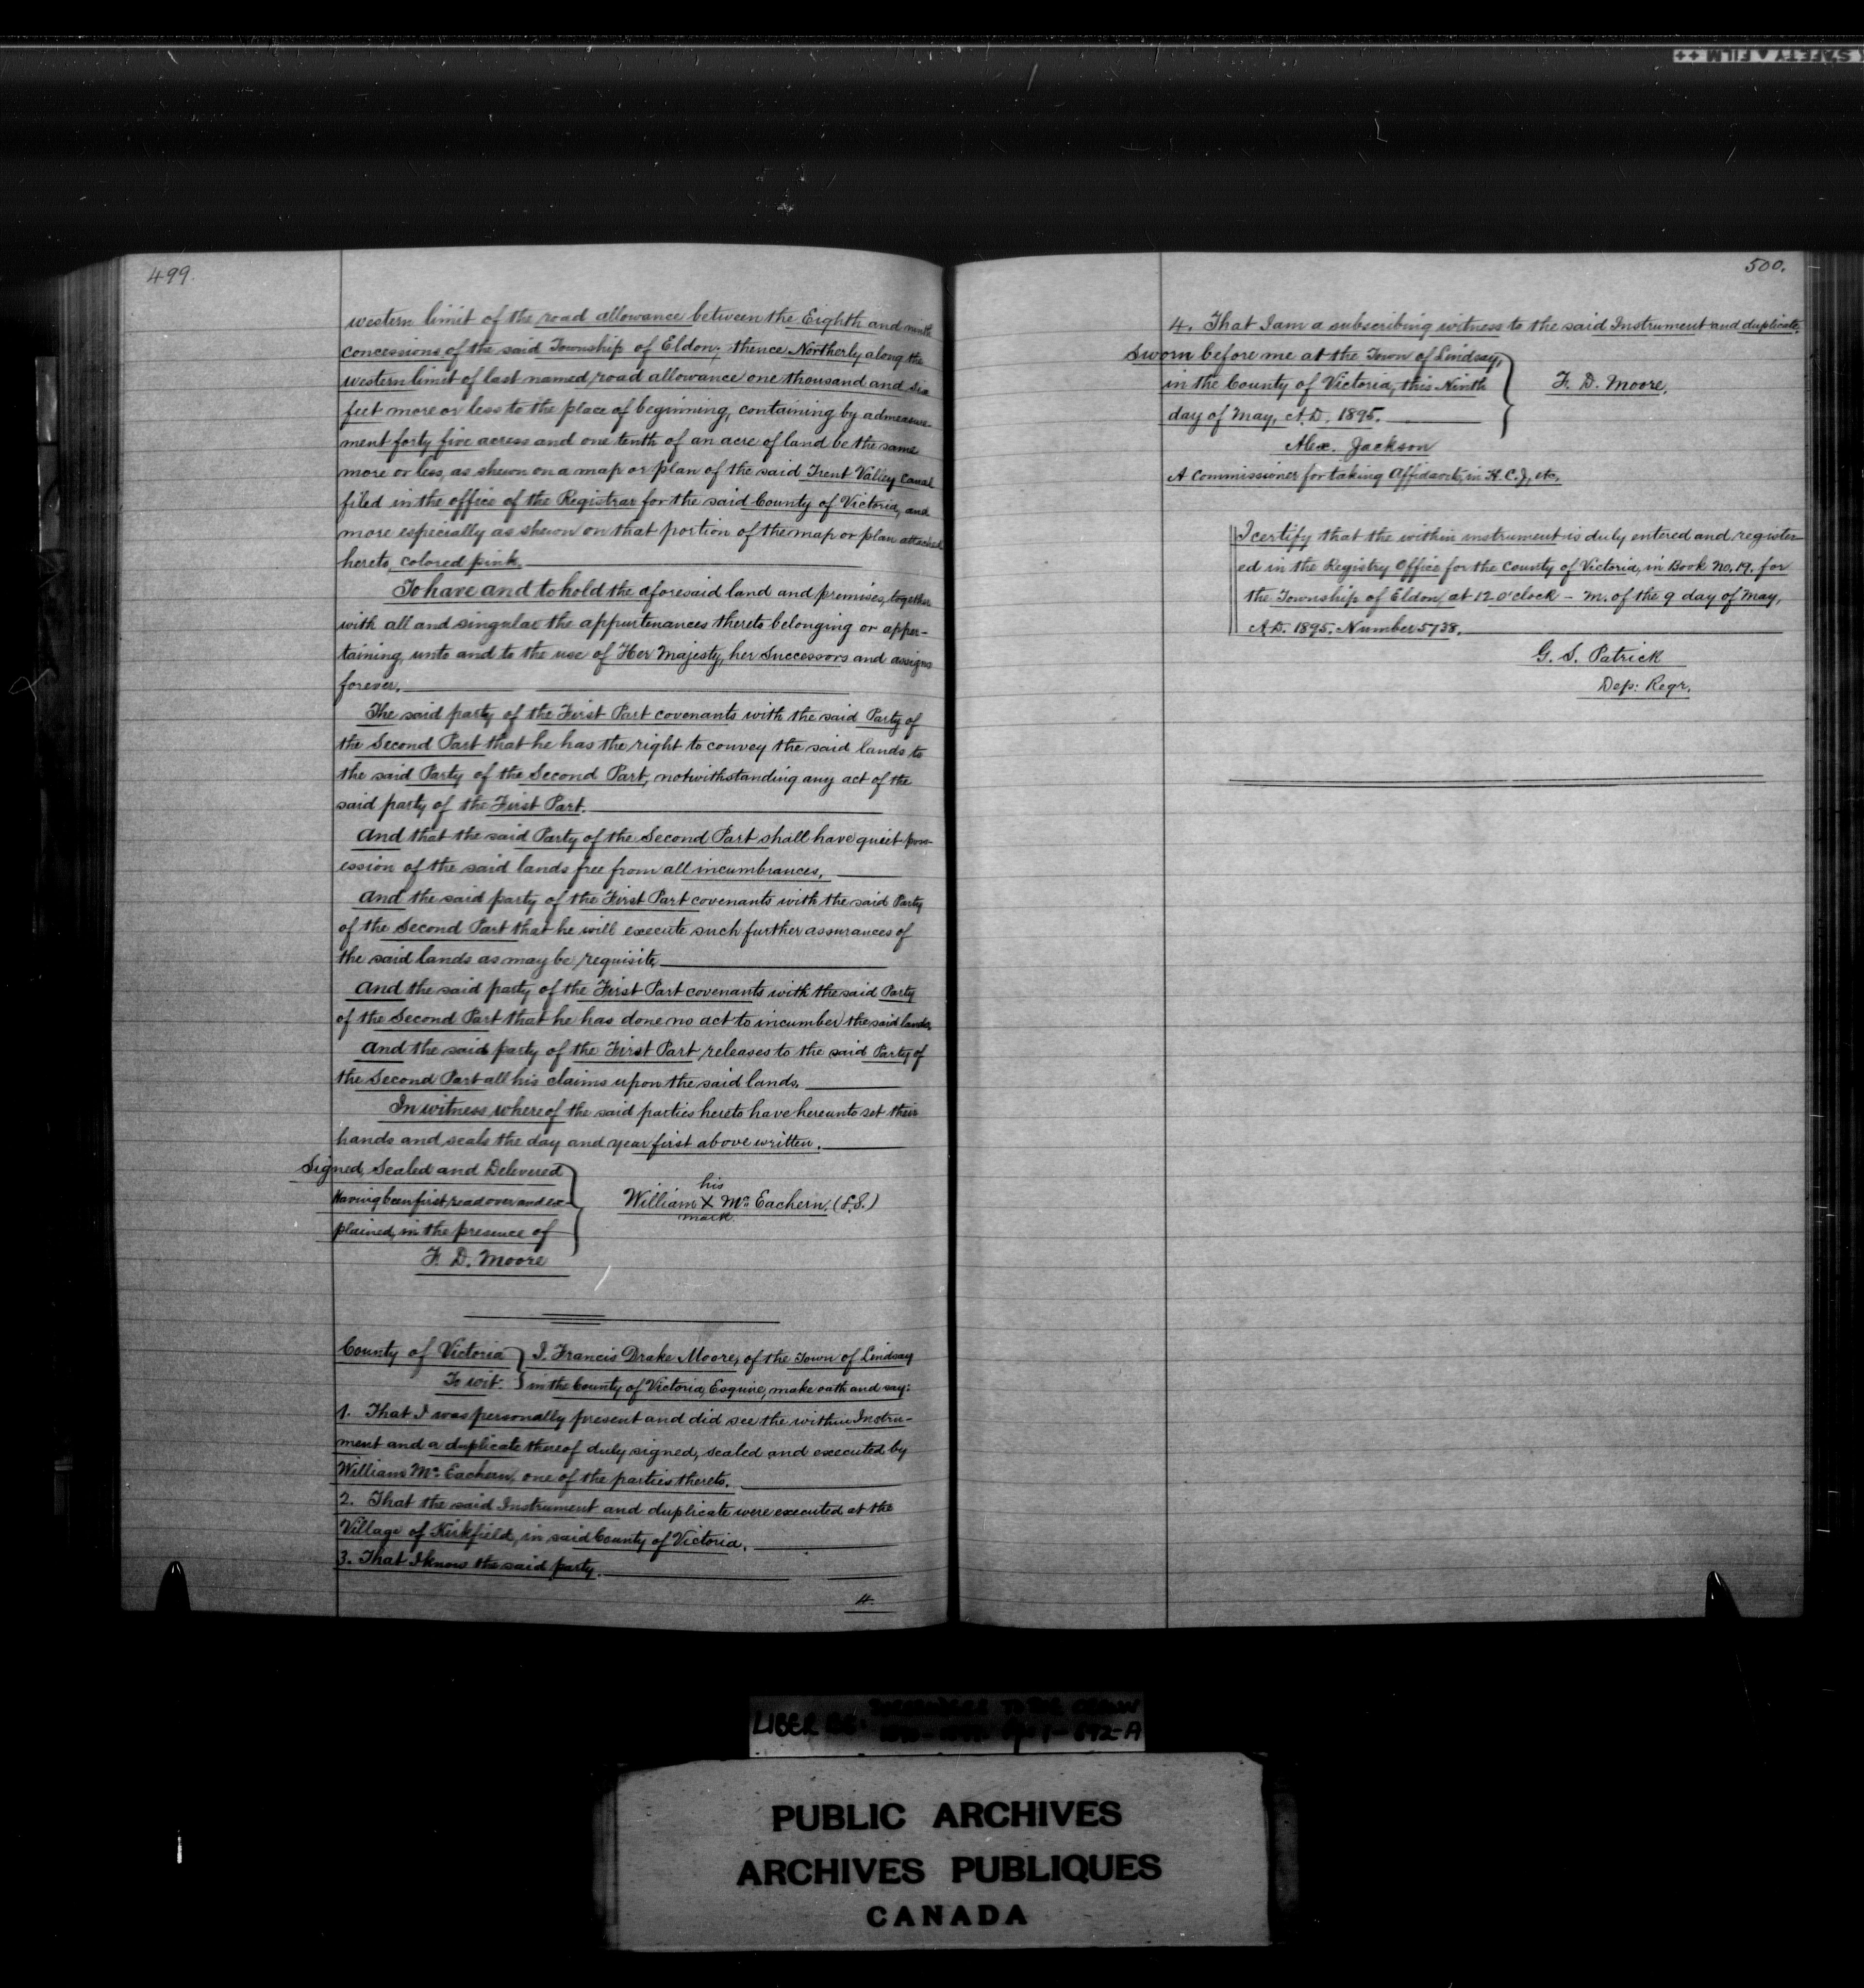 499.
western limit of the road allowance between the Eighth and ninth
concessions of the said Township of Eldon; thence Northerly along the
western limit of last named road allowance one thousand and six
feet more or less to the place of beginning, containing by admeasure-
ment forty five acress and one tenth of an acre of land be the same
more or less, as shewn on a map or plan of the said Trent Valley Canal
filed in the office of the Registrar for the said County of Victoria, and
more especially as shewn on that portion of the map or plan attached
hereto, colored pink.
To have and to hold the aforesaid land and premises, together
with all and singular the appurtenances thereto belonging or apper-
taining, unto and to the use of Her Majesty, her Successors and assigns
forever.
The said party of the First Part covenants with the said Party of
the Second Part that he has the right to convey the said lands to
the said Party of the Second Part, notwithstanding any act of the
said party of the First Part.
And that the said Party of the Second Part shall have quiet poss-
ession of the said lands free from all incumbrances,
And the said party of the First Part covenants with the said Party
of the Second Part that he will execute such further assurances of
the said lands as may be requisite,
And the said party of the First Part covenants with the said Party
of the Second Part that he has done no act to incumber the said lands,
And the said party of the First Part releases to the said Party of
the Second Part all his claims upon the said lands.
In witness whereof the said parties hereto have hereunto set their
hands and seals the day and year first above written.
Signed, Sealed and Delivered
Having been first read over and ex-
plained, in the presence of
F. D. Moore
his
William X Mc Eachern. (L.S.)
mark
County of Victoria } I, Francis Drake Moore, of the Town of Lindsay
To wit. } in the County of Victoria, Esquire, make oath and say:
1. That I was personally present and did see the within Instru-
ment and a duplicate thereof duly signed, sealed and executed by
William Mc Eachern, one of the parties thereto.
2. That the said Instrument and duplicate were executed at the
Village of Kirkfield, in said County of Victoria.
3. That I know the said party.
4.
500.
4. That I am a subscribing witness to the said Instrument and duplicate.
Sworn before me at the Town of Lindsay,
in the County of Victoria, this Ninth
day of May, A.D. 1895.
F. D. Moore.
Alex. Jackson
A Commissioner for taking Affidavits, in H.C.J, etc,
I certify that the within instrument is duly entered and register-
ed in the Registry Office for the County of Victoria, in Book No. 19. for
the Township of Eldon, at 12 o'clock - m. of the 9 day of May,
A.D. 1895. Number 5738.
G. S. Patrick
Dep: Regr.
LIBER
PUBLIC ARCHIVES
ARCHIVES PUBLIQUES
CANADA
SAFETY FILM ++